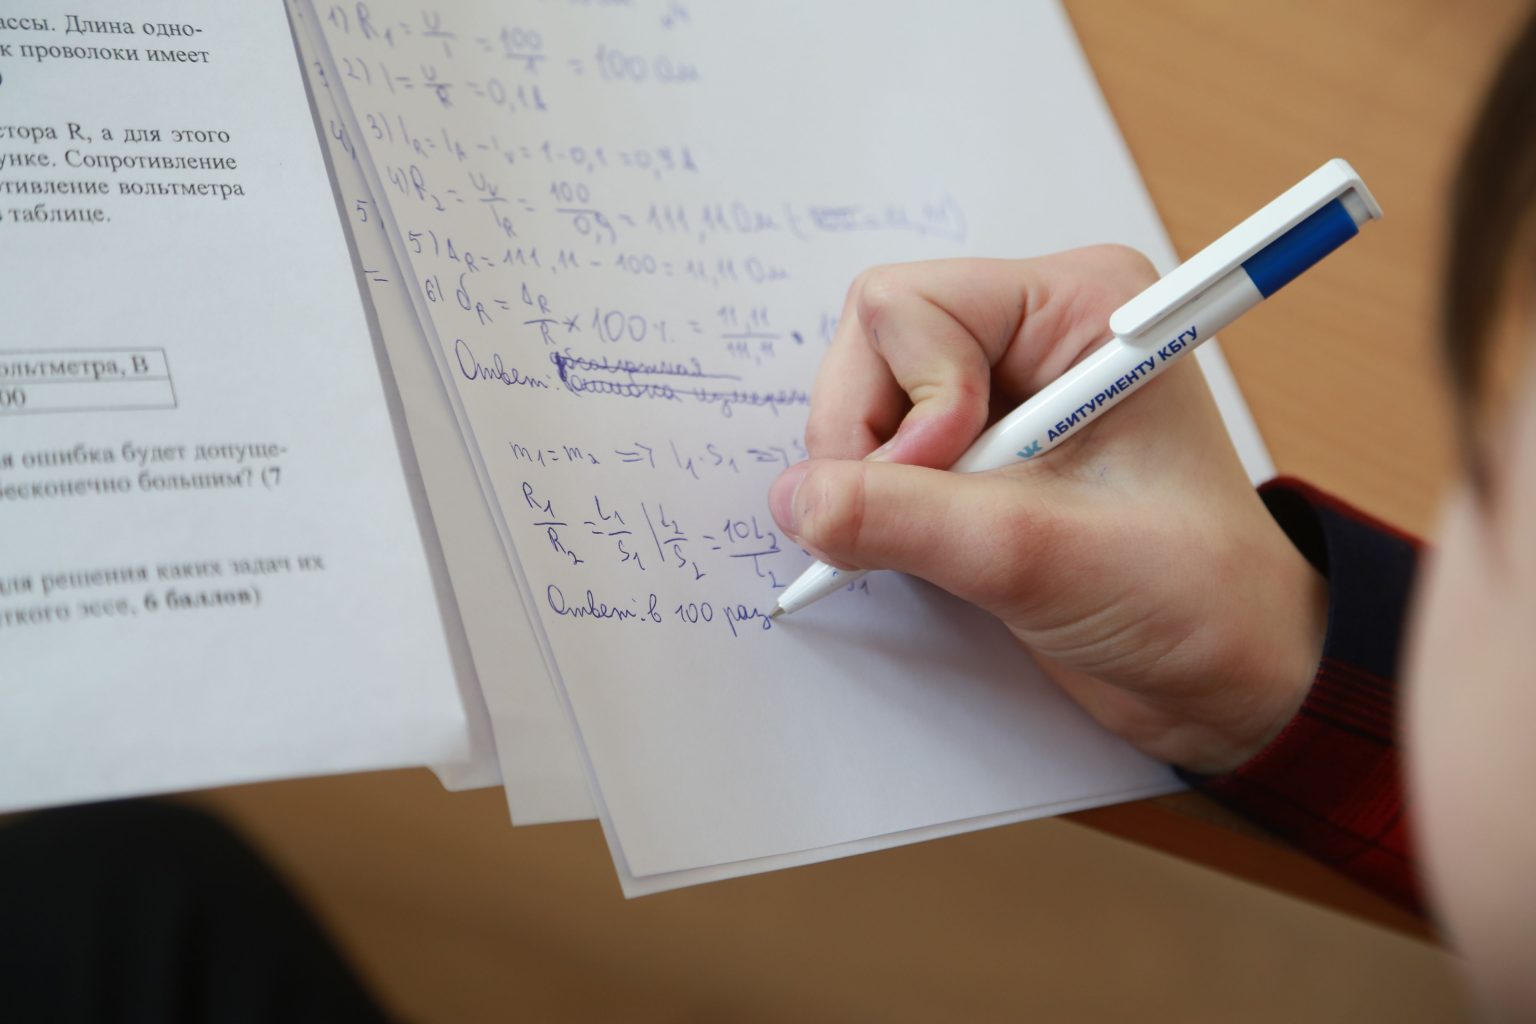 ассы. Длина одно-
к проволоки имеет
стора R, а для этого
унке. Сопротивление
отивление вольтметра
в таблице.
ольтметра, В
00
я ошибка будет допуще-
бесконечно большим? (7
для решения каких задач их
ткого эссе, 6 баллов)
1) R₁ = U/I = 100/1 = 100 Ом
2) I = U/R = 0,1 А
3) I_R = I_A - I_V = 1 - 0,1 = 0,9 А
4) R₂ = U_V/I_R = 100/0,9 = 111,11 Ом
5) Δ_R = 111,11 - 100 = 11,11 Ом
6) δ_R = Δ_R/R × 100% = 11,11/111,11 ·
Ответ: абсолютная
ошибка измерен
m₁ = m₂ => l₁·S₁ =>
R₁/R₂ = L₁/S₁ | L₂/S₂ = 10L₂/L₂
Ответ: в 100 раз
3
4)
5)
=
АБИТУРИЕНТУ КБГУ